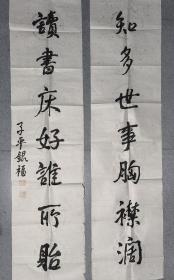 知多世事胸襟濶
讀書庆好誰所貽
子平銀福